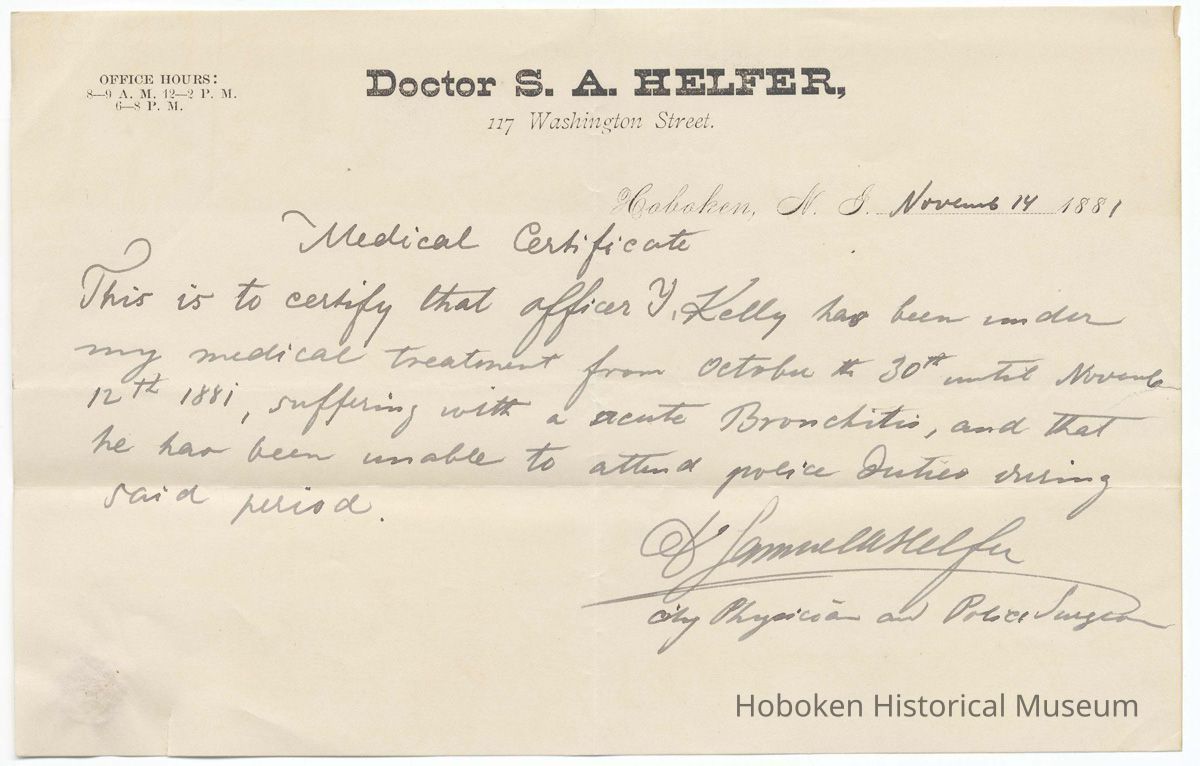 OFFICE HOURS:
8—9 A. M. 12—2 P. M.
6—8 P. M.
Doctor S. A. HELFER,
117 Washington Street.
Hoboken, N. J. Novemb 14 1881
Medical Certificate
This is to certify that officer Y. Kelly has been under
my medical treatment from October th 30th until November
12th 1881, suffering with a acute Bronchitis, and that
he has been unable to attend police duties during
said period.
Dr Samuel A Helfer
City Physician and Police Surgeon
Hoboken Historical Museum